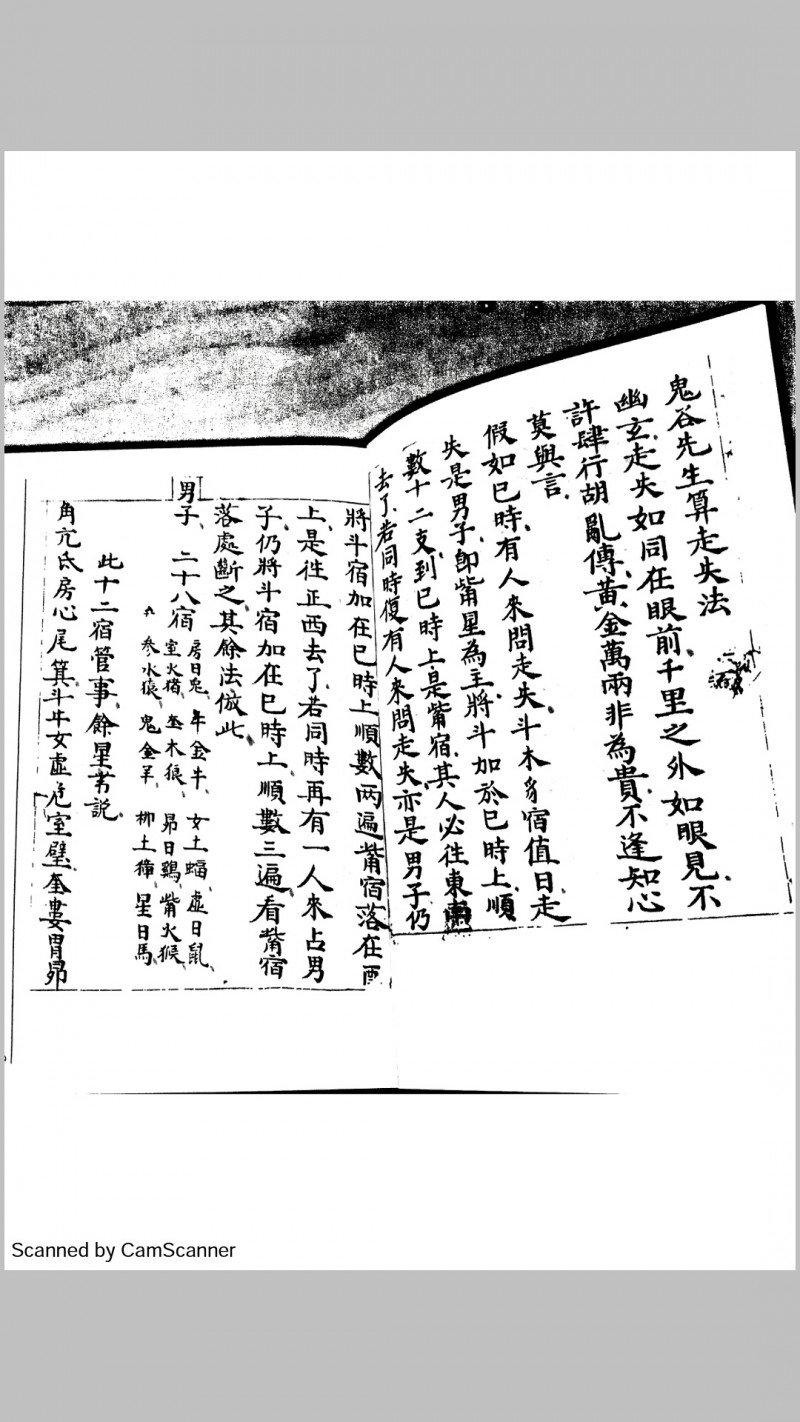 鬼谷先生算走失法
幽玄走失如同在眼前千里之外如眼見不
許肆行胡亂傳黃金萬兩非為貴不逢知心
莫與言
假如巳時有人來問走失斗木豸宿值日走
失是男子即觜星為主將斗加於巳時上順
數十二支到巳時上是觜宿其人必往東南
去了若同時復有人來問走失亦是男子仍
將斗宿加在巳時上順數兩遍觜宿落在酉
上是徃正西去了若同時再有一人來占男
子仍將斗宿加在巳時上順數三遍看觜宿
落處斷之其餘法倣此
男子 二十八宿 房日兎 牛金牛 女土蝠 虛日鼠
室火猪 奎木狼 昴日鷄 觜火猴
參水猿 鬼金羊 柳土獐 星日馬
此十二宿管事餘星另說
角亢氐房心尾箕斗牛女虛危室壁奎婁胃昴
Scanned by CamScanner